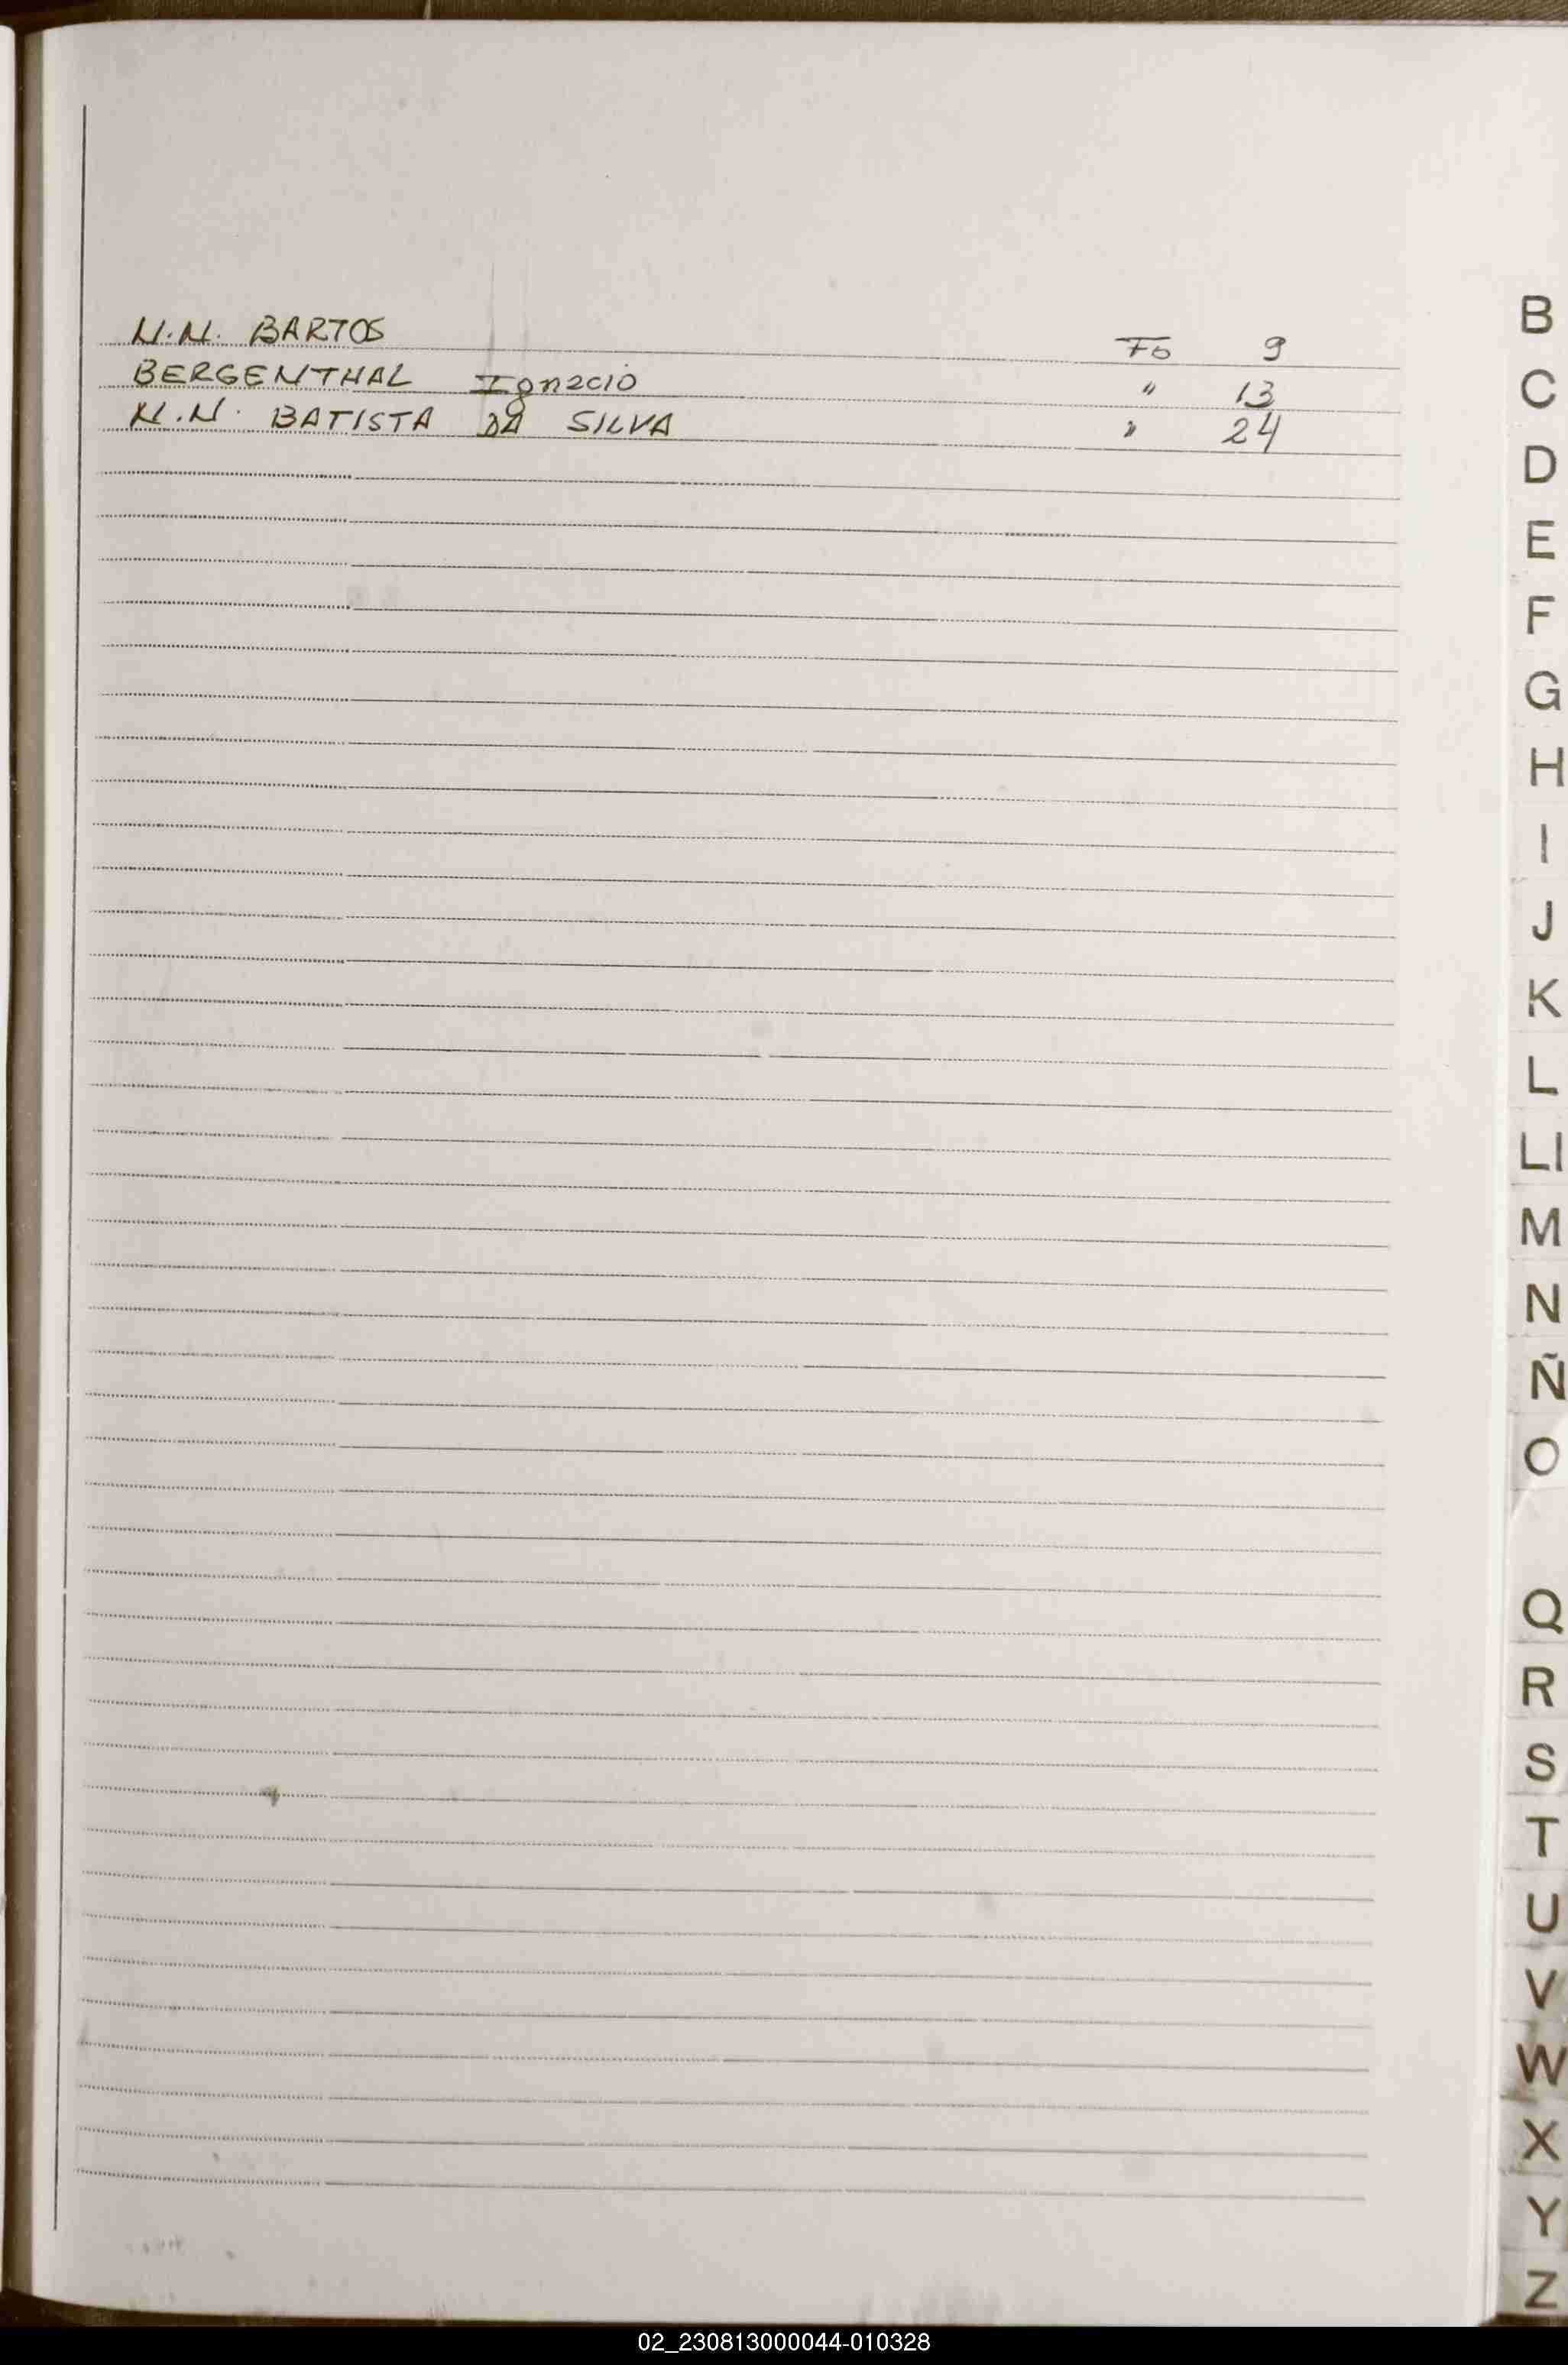 N.N. BARTOS Fo 9
BERGENTHAL Ignacio " 13
N.N. BATISTA DA SILVA " 24
B
C
D
E
F
G
H
I
J
K
L
Ll
M
N
Ñ
O
Q
R
S
T
U
V
W
X
Y
Z
02_230813000044-010328